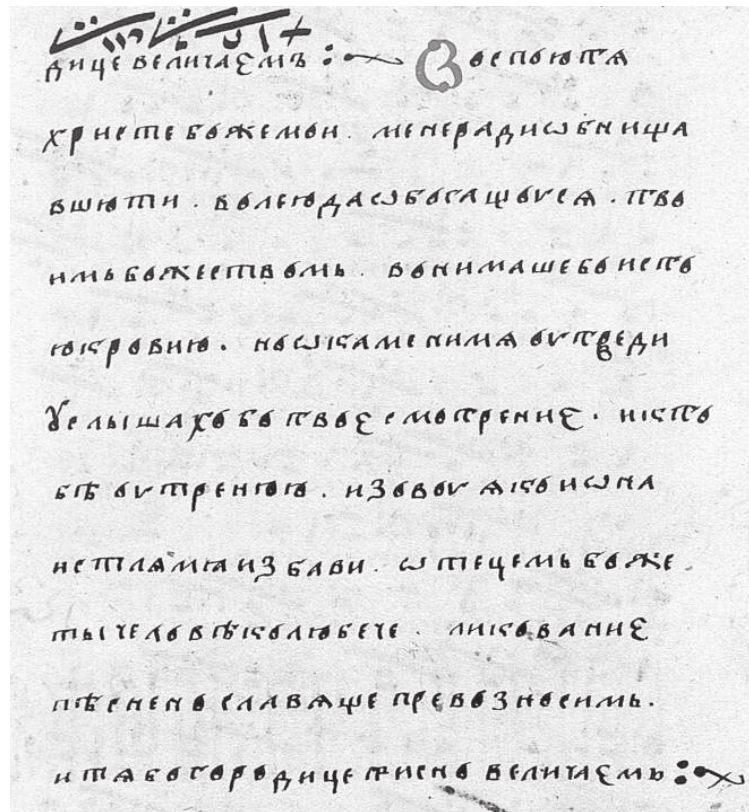 дицевеличаємъ :~ Воспоютѧ
христебожемои . менерадиѡбнища
вшюти . волеюдаѡбогащоусѧ . тво
имьбожествомь . вонимашебоието
юкровию . ноѡкаменимѧ оутверди
Ѹслышахоботвоє смотрениє . икто
бѣ оутренюю . изовоу ѧкоиѡна
истлѧмѧизбави . ѡтецемьбоже .
тычеловѣколюбече . ликованиє
пѣсненославѧще превозносимь .
итѧбогородице тиено величаємь :~